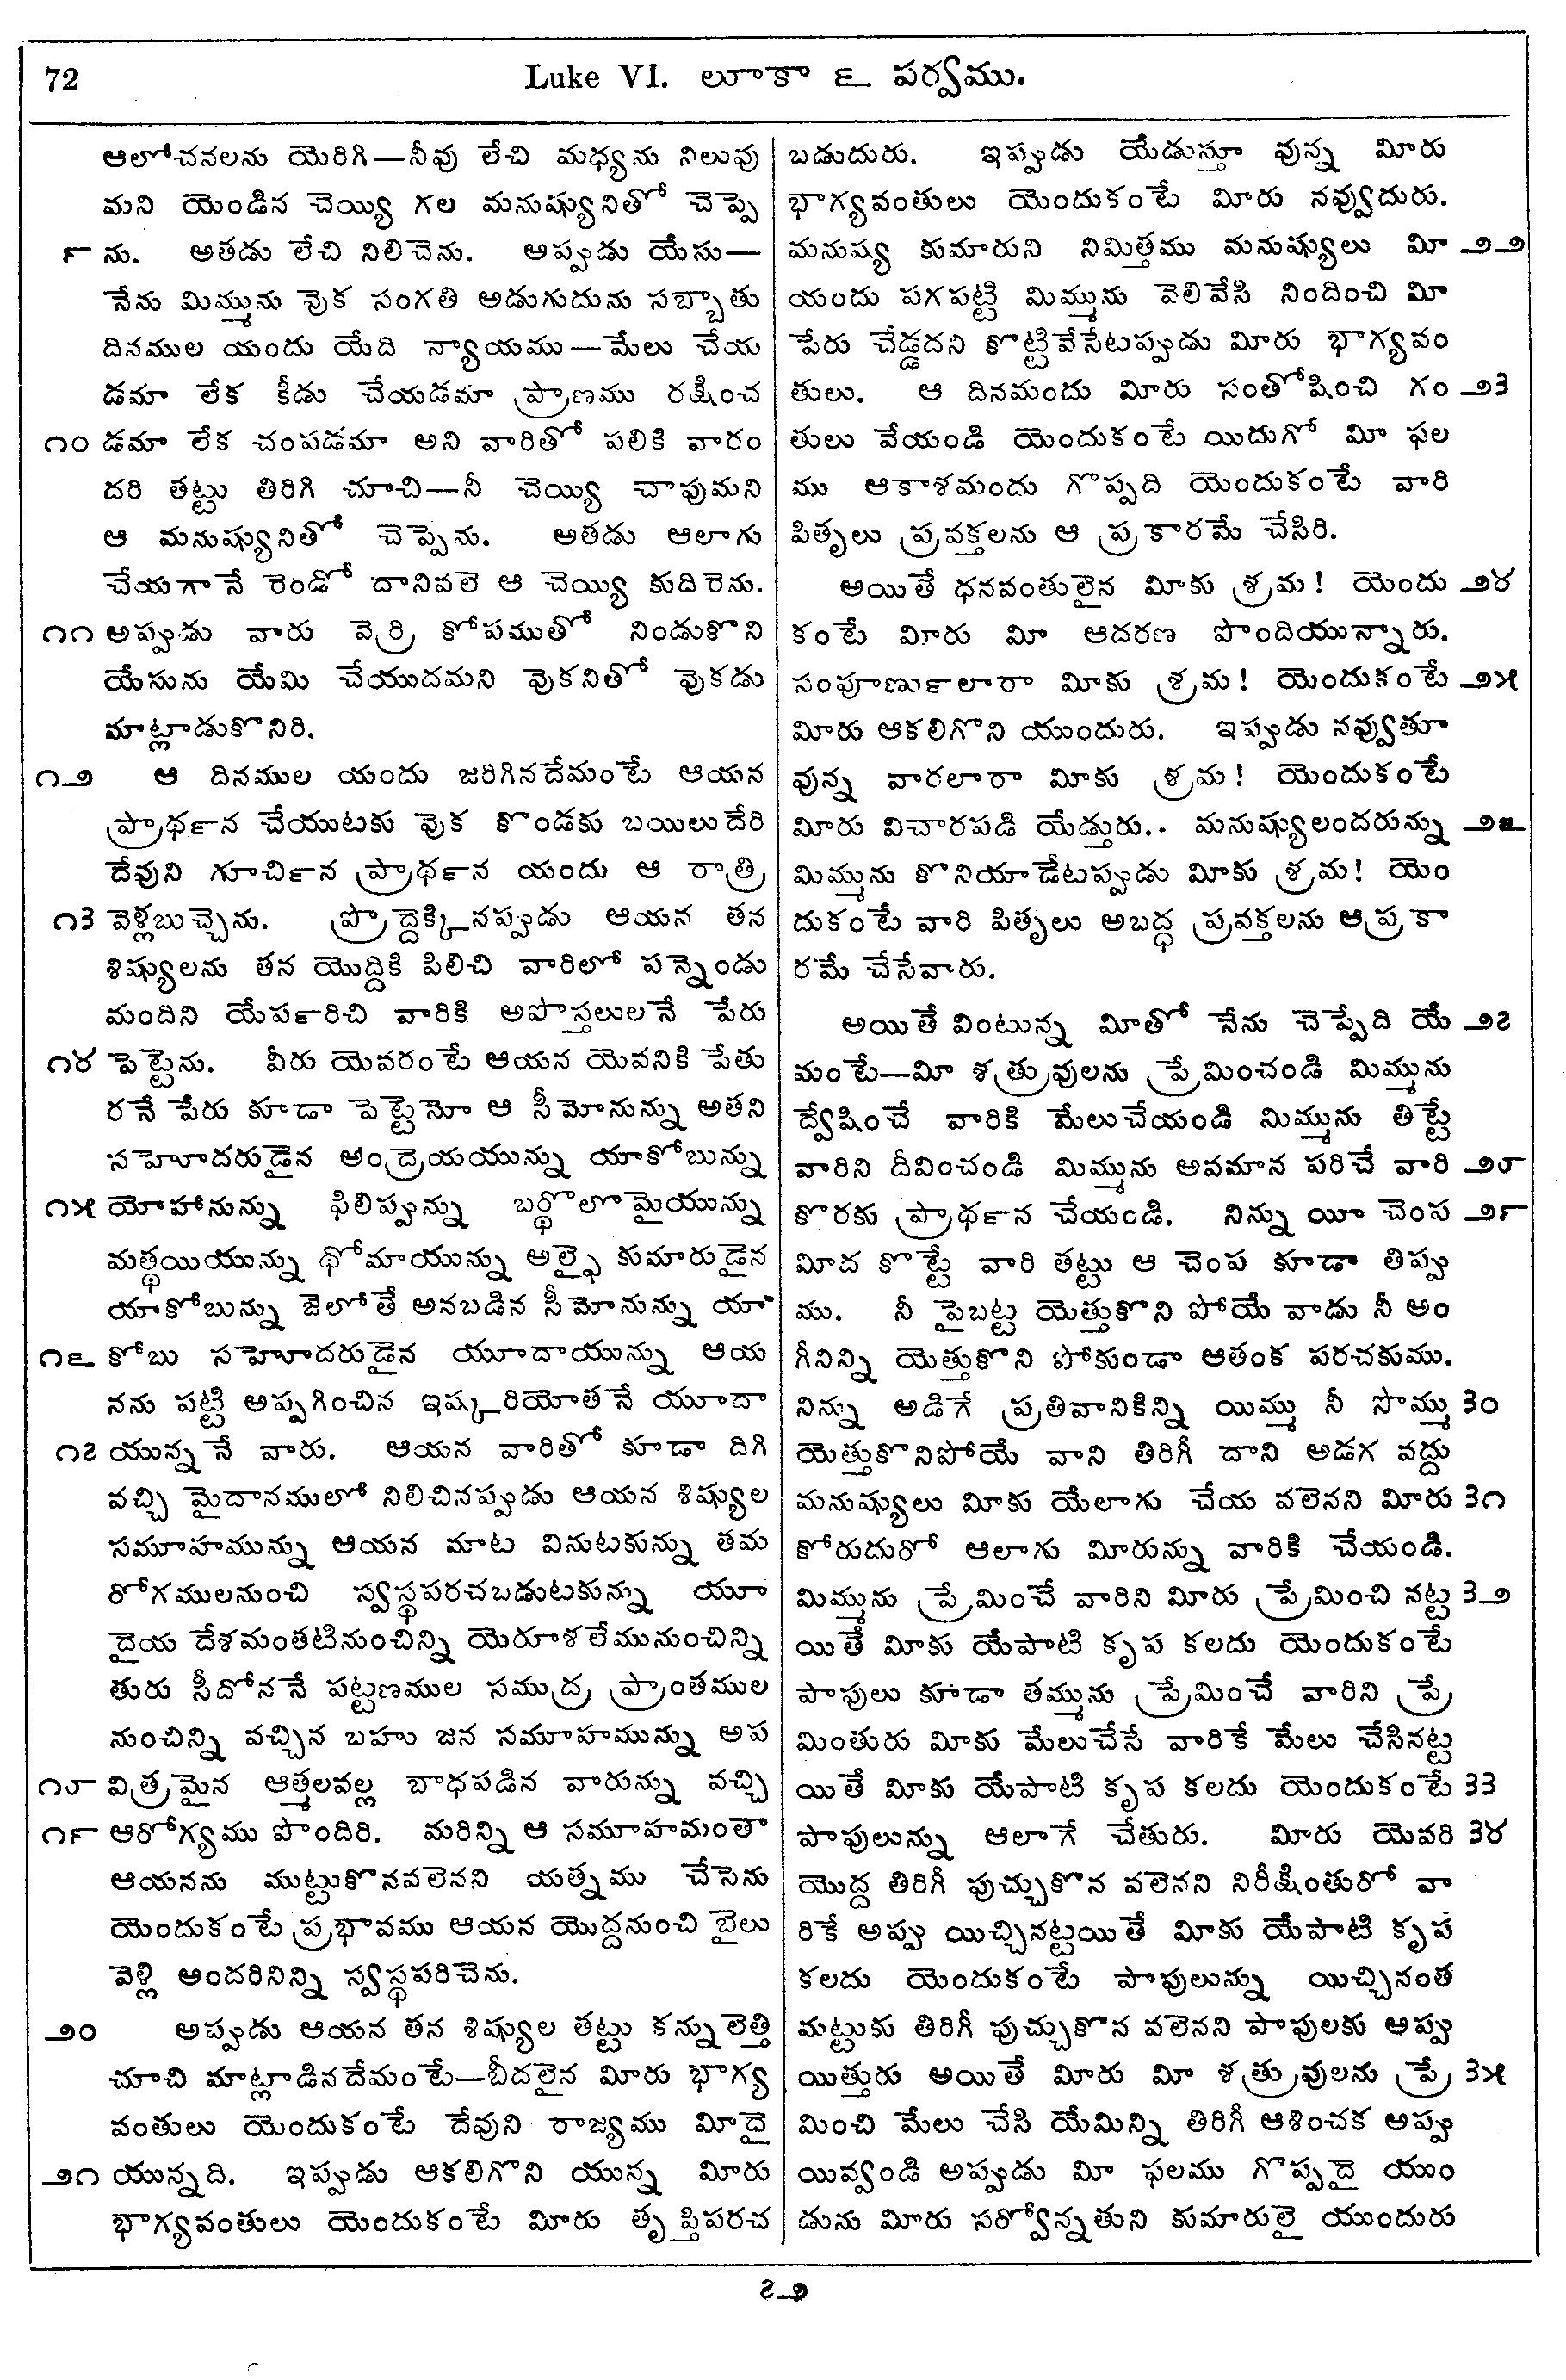 72 Luke VI. లూకా ౬ పర్వము.
ఆలోచనలను యెరిగి—నీవు లేచి మధ్యను నిలువు
మని యెండిన చెయ్యి గల మనుష్యునితో చెప్పె
౯ ను. అతడు లేచి నిలిచెను. అప్పుడు యేసు—
నేను మిమ్మును వొక సంగతి అడుగుదును సబ్బాతు
దినముల యందు యేది న్యాయము—మేలు చేయ
డమా లేక కీడు చేయడమా ప్రాణము రక్షించ
౧౦ డమా లేక చంపడమా అని వారితో పలికి వారం
దరి తట్టు తిరిగి చూచి—నీ చెయ్యి చాపుమని
ఆ మనుష్యునితో చెప్పెను. అతడు ఆలాగు
చేయగానే రెండో దానివలె ఆ చెయ్యి కుదిరెను.
౧౧ అప్పుడు వారు వెర్రి కోపముతో నిండుకొని
యేసును యేమి చేయుదమని వొకనితో వొకడు
మాట్లాడుకొనిరి.
౧౨ ఆ దినముల యందు జరిగినదేమంటే ఆయన
ప్రార్థన చేయుటకు వొక కొండకు బయిలుదేరి
దేవుని గూర్చిన ప్రార్థన యందు ఆ రాత్రి
౧౩ వెళ్లబుచ్చెను. ప్రొద్దెక్కినప్పుడు ఆయన తన
శిష్యులను తన యొద్దికి పిలిచి వారిలో పన్నెండు
మందిని యేర్పరిచి వారికి అపొస్తలులనే పేరు
౧౪ పెట్టెను. వీరు యెవరంటే ఆయన యెవనికి పేతు
రనే పేరు కూడా పెట్టెనో ఆ సీమోనున్ను అతని
సహోదరుడైన అంద్రెయయున్ను యాకోబున్ను
౧౫ యోహానున్ను ఫిలిప్పున్ను బర్థొలొమైయున్ను
మత్థయియున్ను థోమాయున్ను అల్ఫై కుమారుడైన
యాకోబున్ను జెలోతే అనబడిన సీమోనున్ను యా
౧౬ కోబు సహోదరుడైన యూదాయున్ను ఆయ
నను పట్టి అప్పగించిన ఇష్కరియోతనే యూదా
౧౭ యున్ననే వారు. ఆయన వారితో కూడా దిగి
వచ్చి మైదానములో నిలిచినప్పుడు ఆయన శిష్యుల
సమూహమున్ను ఆయన మాట వినుటకున్ను తమ
రోగములనుంచి స్వస్థపరచబడుటకున్ను యూ
దైయ దేశమంతటినుంచిన్ని యెరూశలేమునుంచిన్ని
తురు సీదోననే పట్టణముల సముద్ర ప్రాంతముల
నుంచిన్ని వచ్చిన బహు జన సమూహమున్ను అప
౧౮ విత్రమైన ఆత్మలవల్ల బాధపడిన వారున్ను వచ్చి
౧౯ ఆరోగ్యము పొందిరి. మరిన్ని ఆ సమూహమంతా
ఆయనను ముట్టుకొనవలెనని యత్నము చేసెను
యెందుకంటే ప్రభావము ఆయన యొద్దనుంచి బైలు
వెళ్లి అందరినిన్ని స్వస్థపరిచెను.
౨౦ అప్పుడు ఆయన తన శిష్యుల తట్టు కన్నులెత్తి
చూచి మాట్లాడినదేమంటే—బీదలైన మీరు భాగ్య
వంతులు యెందుకంటే దేవుని రాజ్యము మీదై
౨౧ యున్నది. ఇప్పుడు ఆకలిగొని యున్న మీరు
భాగ్యవంతులు యెందుకంటే మీరు తృప్తిపరచ
బడుదురు. ఇప్పుడు యేడుస్తూ వున్న మీరు
భాగ్యవంతులు యెందుకంటే మీరు నవ్వుదురు.
మనుష్య కుమారుని నిమిత్తము మనుష్యులు మీ ౨౨
యందు పగపట్టి మిమ్మును వెలివేసి నిందించి మీ
పేరు చేడ్డదని కొట్టివేసేటప్పుడు మీరు భాగ్యవం
తులు. ఆ దినమందు మీరు సంతోషించి గం ౨౩
తులు వేయండి యెందుకంటే యిదుగో మీ ఫల
ము ఆకాశమందు గొప్పది యెందుకంటే వారి
పితృలు ప్రవక్తలను ఆ ప్రకారమే చేసిరి.
అయితే ధనవంతులైన మీకు శ్రమ! యెందు ౨౪
కంటే మీరు మీ ఆదరణ పొందియున్నారు.
సంపూర్ణులారా మీకు శ్రమ! యెందుకంటే ౨౫
మీరు ఆకలిగొని యుందురు. ఇప్పుడు నవ్వుతూ
వున్న వారలారా మీకు శ్రమ! యెందుకంటే
మీరు విచారపడి యేడ్తురు.. మనుష్యులందరున్ను ౨౬
మిమ్మును కొనియాడేటప్పుడు మీకు శ్రమ! యెం
దుకంటే వారి పితృలు అబద్ధ ప్రవక్తలను ఆప్రకా
రమే చేసేవారు.
అయితే వింటున్న మీతో నేను చెప్పేది యే ౨౭
మంటే—మీ శత్రువులను ప్రేమించండి మిమ్మును
ద్వేషించే వారికి మేలుచేయండి మిమ్మును తిట్టే
వారిని దీవించండి మిమ్మును అవమాన పరిచే వారి ౨౮
కొరకు ప్రార్థన చేయండి. నిన్ను యీ చెంప ౨౯
మీద కొట్టే వారి తట్టు ఆ చెంప కూడా తిప్పు
ము. నీ పైబట్ట యెత్తుకొని పోయే వాడు నీ అం
గీనిన్ని యెత్తుకొని పోకుండా ఆతంక పరచకుము.
నిన్ను అడిగే ప్రతివానికిన్ని యిమ్ము నీ సొమ్ము ౩౦
యెత్తుకొనిపోయే వాని తిరిగీ దాని అడగ వద్దు
మనుష్యులు మీకు యేలాగు చేయ వలెనని మీరు ౩౧
కోరుదురో ఆలాగు మీరున్ను వారికి చేయండి.
మిమ్మును ప్రేమించే వారిని మీరు ప్రేమించి నట్ట ౩౨
యితే మీకు యేపాటి కృప కలదు యెందుకంటే
పాపులు కూడా తమ్మును ప్రేమించే వారిని ప్రే
మింతురు మీకు మేలుచేసే వారికే మేలు చేసినట్ట
యితే మీకు యేపాటి కృప కలదు యెందుకంటే ౩౩
పాపులున్ను ఆలాగే చేతురు. మీరు యెవరి ౩౪
యొద్ద తిరిగీ పుచ్చుకొన వలెనని నిరీక్షింతురో వా
రికే అప్పు యిచ్చినట్టయితే మీకు యేపాటి కృప
కలదు యెందుకంటే పాపులున్ను యిచ్చినంత
మట్టుకు తిరిగీ పుచ్చుకొన వలెనని పాపులకు అప్పు
యిత్తురు అయితే మీరు మీ శత్రువులను ప్రే ౩౫
మించి మేలు చేసి యేమిన్ని తిరిగీ ఆశించక అప్పు
యివ్వండి అప్పుడు మీ ఫలము గొప్పదై యుం
డును మీరు సర్వోన్నతుని కుమారులై యుందురు
౭౨